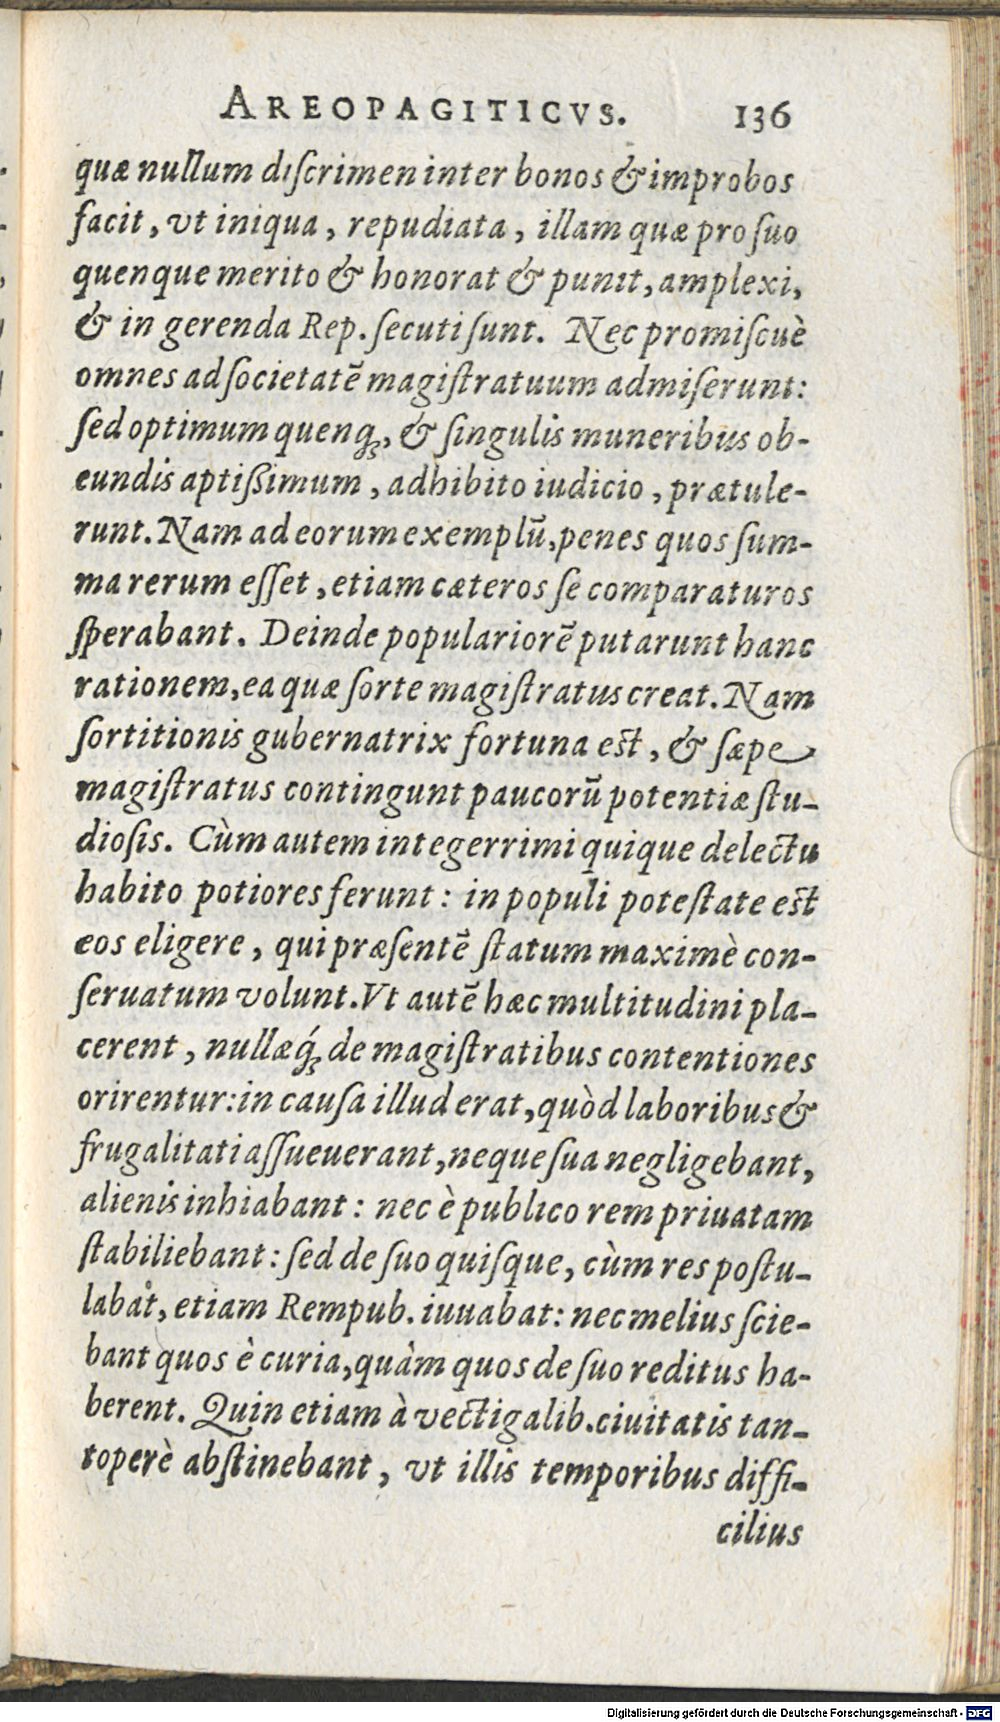 AREOPAGITICVS. 136
quæ nullum discrimen inter bonos & improbos
facit, vt iniqua, repudiata, illam quæ pro suo
quenque merito & honorat & punit, amplexi,
& in gerenda Rep. secuti sunt. Nec promiscuè
omnes ad societatē magistratuum admiserunt:
sed optimum quenq;, & singulis muneribus ob-
eundis aptissimum, adhibito iudicio, prætule-
runt. Nam ad eorum exemplū, penes quos sum-
ma rerum esset, etiam cæteros se comparaturos
sperabant. Deinde populariorē putarunt hanc
rationem, ea quæ sorte magistratus creat. Nam
sortitionis gubernatrix fortuna est, & sæpe
magistratus contingunt paucorū potentiæ stu-
diosis. Cùm autem integerrimi quique delectu
habito potiores ferunt: in populi potestate est
eos eligere, qui præsentē statum maximè con-
seruatum volunt. Vt autē hæc multitudini pla-
cerent, nullæq́; de magistratibus contentiones
orirentur: in causa illud erat, quòd laboribus &
frugalitati assueuerant, neque sua negligebant,
alienis inhiabant: nec è publico rem priuatam
stabiliebant: sed de suo quisque, cùm res postu-
labat, etiam Rempub. iuuabat: nec melius scie-
bant quos è curia, quàm quos de suo reditus ha-
berent. Quin etiam à vectigalib. ciuitatis tan-
toperè abstinebant, vt illis temporibus diffi-
cilius
Digitalisierung gefördert durch die Deutsche Forschungsgemeinschaft - DFG